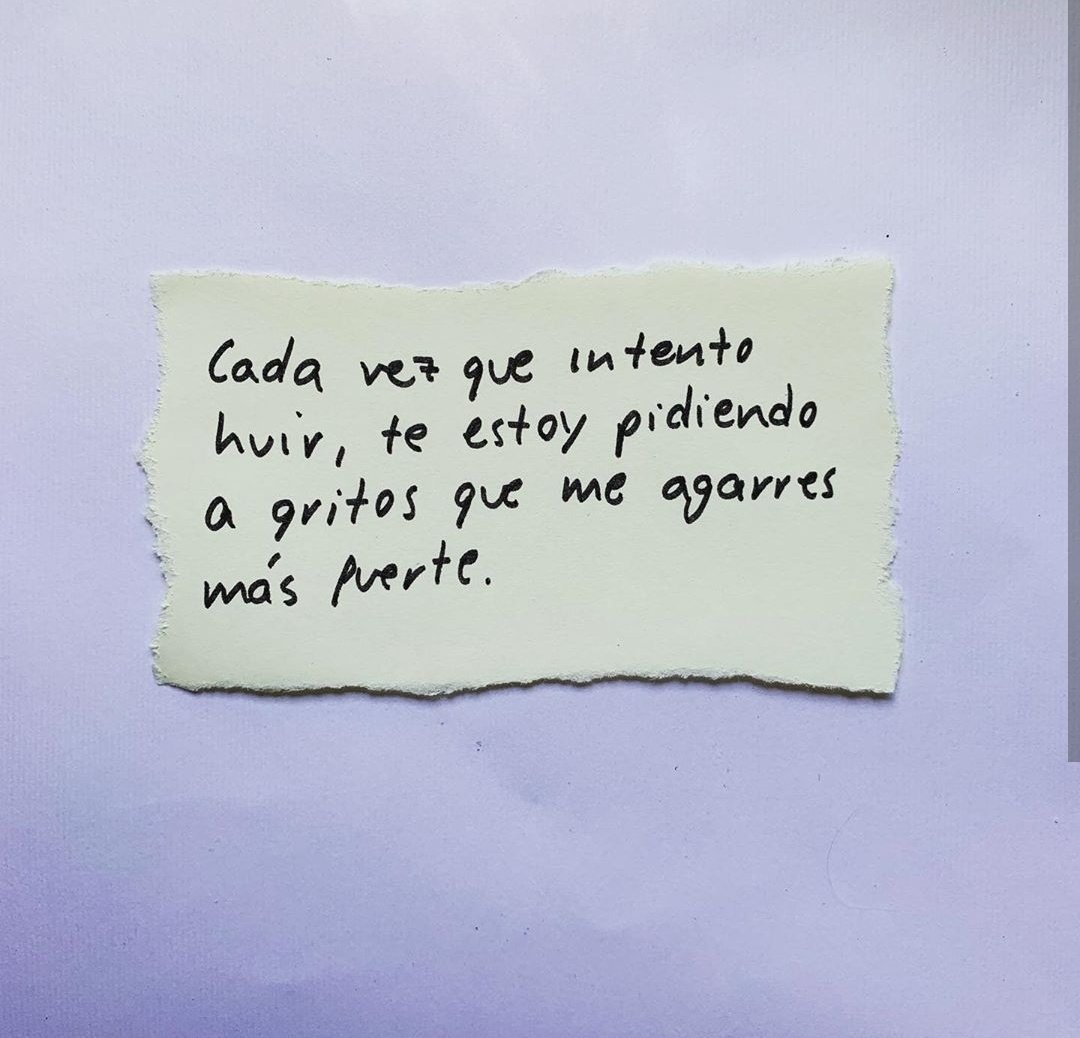 Cada vez que intento
huir, te estoy pidiendo
a gritos que me agarres
más fuerte.